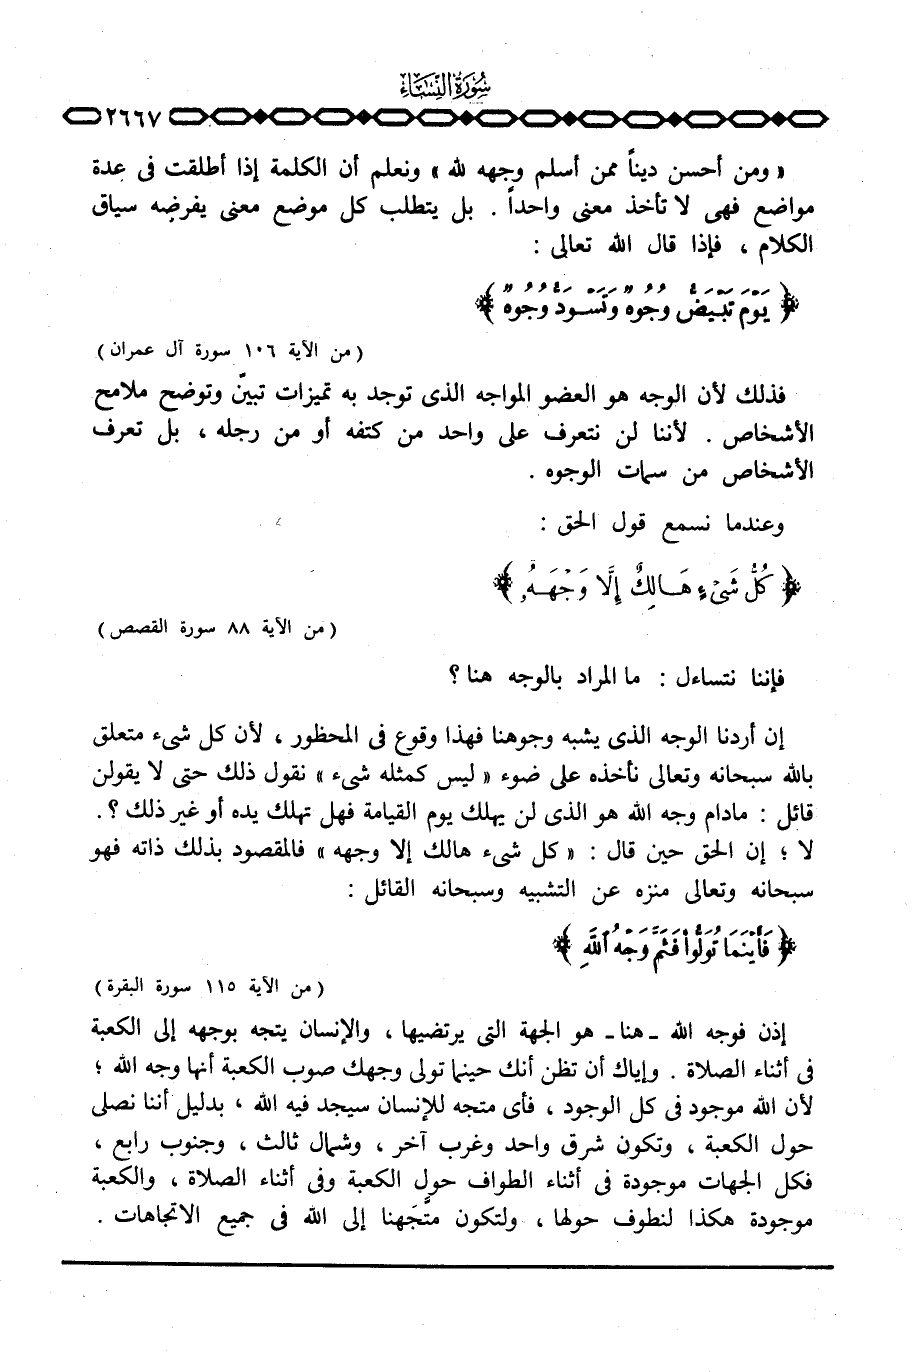 سُورَةُ النِّسَاء
٢٦٦٧
« ومن أحسن ديناً ممن أسلم وجهه لله » ونعلم أن الكلمة إذا أطلقت فى عدة
مواضع فهى لا تأخذ معنى واحداً . بل يتطلب كل موضع معنى يفرضه سياق
الكلام ، فإذا قال الله تعالى :
﴿ يَوْمَ تَبْيَضُّ وُجُوهٌ وَتَسْوَدُّ وُجُوهٌ ﴾
( من الآية ١٠٦ سورة آل عمران )
فذلك لأن الوجه هو العضو المواجه الذى توجد به تميزات تبينّ وتوضح ملامح
الأشخاص . لأننا لن نتعرف على واحد من كتفه أو من رجله ، بل تعرف
الأشخاص من سمات الوجوه .
وعندما نسمع قول الحق :
﴿ كُلُّ شَىْءٍ هَالِكٌ إِلَّا وَجْهَهُ ﴾
( من الآية ٨٨ سورة القصص )
فإننا نتساءل : ما المراد بالوجه هنا ؟
إن أردنا الوجه الذى يشبه وجوهنا فهذا وقوع فى المحظور ، لأن كل شىء متعلق
بالله سبحانه وتعالى نأخذه على ضوء « ليس كمثله شىء » نقول ذلك حتى لا يقولن
قائل : مادام وجه الله هو الذى لن يهلك يوم القيامة فهل تهلك يده أو غير ذلك ؟ .
لا ؛ إن الحق حين قال : « كل شىء هالك إلا وجهه » فالمقصود بذلك ذاته فهو
سبحانه وتعالى منزه عن التشبيه وسبحانه القائل :
﴿ فَأَيْنَمَا تُوَلُّوا فَثَمَّ وَجْهُ اللَّهِ ﴾
( من الآية ١١٥ سورة البقرة )
إذن فوجه الله ـ هنا ـ هو الجهة التى يرتضيها ، والإنسان يتجه بوجهه إلى الكعبة
فى أثناء الصلاة . وإياك أن تظن أنك حينما تولى وجهك صوب الكعبة أنها وجه الله ؛
لأن الله موجود فى كل الوجود ، فأى متجه للإنسان سيجد فيه الله ، بدليل أننا نصلى
حول الكعبة ، وتكون شرق واحد وغرب آخر ، وشمال ثالث ، وجنوب رابع ،
فكل الجهات موجودة فى أثناء الطواف حول الكعبة وفى أثناء الصلاة ، والكعبة
موجودة هكذا لنطوف حولها ، ولتكون متَّجَهنا إلى الله فى جميع الاتجاهات .